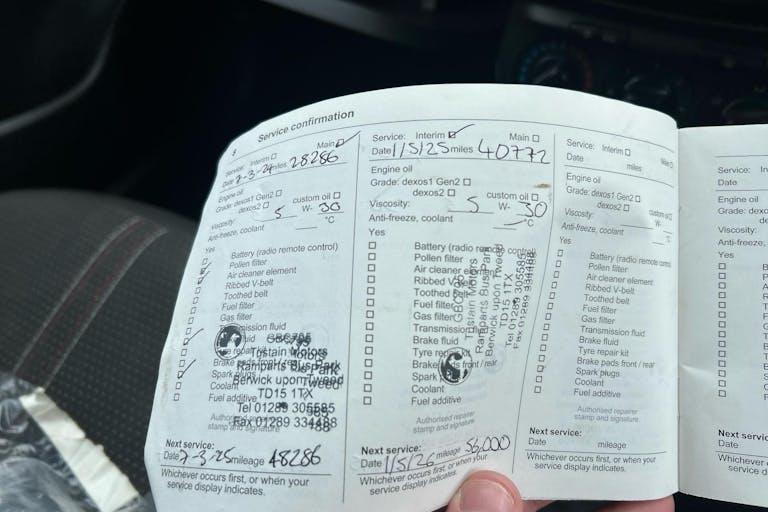 Service confirmation
Service: Interim ☐ Main ☑
Date 7-3-24 miles 28286
Engine oil
Grade: dexos1 Gen2 ☐
dexos2 ☐ custom oil ☐
Viscosity: 5 W- 30
Anti-freeze, coolant °C
Yes
Battery (radio remote control)
Pollen filter
Air cleaner element
Ribbed V-belt
Toothed belt
Fuel filter
Gas filter
Transmission fluid
Brake pads front / rear
Spark plugs
Coolant
Fuel additive
Tustain Motors
Ramparts Bus Park
Berwick upon Tweed
TD15 1TX
Tel 01289 305585
Fax 01289 334488
stamp and signature
Next service:
Date 7-3-25 mileage 48286
Whichever occurs first, or when your
service display indicates.
Service: Interim ☑ Main ☐
Date 1/5/25 miles 40772
Engine oil
Grade: dexos1 Gen2 ☐
dexos2 ☐ custom oil ☐
Viscosity: 5 W- 30
Anti-freeze, coolant °C
Yes
Battery (radio remote control)
Pollen filter
Air cleaner element
Ribbed V-belt
Toothed belt
Fuel filter
Gas filter
Transmission fluid
Brake fluid
Tyre repair kit
Brake pads front / rear
Spark plugs
Coolant
Fuel additive
Tustain Motors
Ramparts Bus Park
Berwick upon Tweed
TD15 1TX
Tel 01289 305585
Fax 01289 334488
Authorised repairer
stamp and signature
Next service:
Date 1/5/26 mileage 56,000
Whichever occurs first, or when your
service display indicates.
Service: Interim ☐ Main ☐
Date miles
Engine oil
Grade: dexos1 Gen2 ☐
dexos2 ☐ custom oil ☐
Viscosity: W-
Anti-freeze, coolant °C
Yes
Battery (radio remote control)
Pollen filter
Air cleaner element
Ribbed V-belt
Toothed belt
Fuel filter
Gas filter
Transmission fluid
Brake fluid
Tyre repair kit
Brake pads front / rear
Spark plugs
Coolant
Fuel additive
Authorised repairer
stamp and signature
Next service:
Date mileage
Whichever occurs first, or when your
service display indicates.
Service: In
Date
Engine oil
Grade: dexo
Viscosity:
Anti-freeze,
Yes
Next servic
Date
Whichever
service d